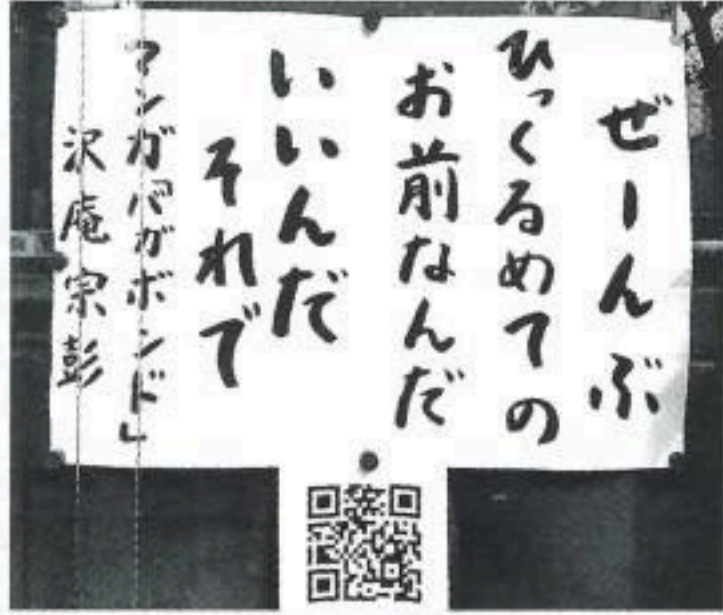 ぜーんぶ
ひっくるめての
お前なんだ
いいんだ
それで
マンガ「バガボンド」
沢庵宗彭